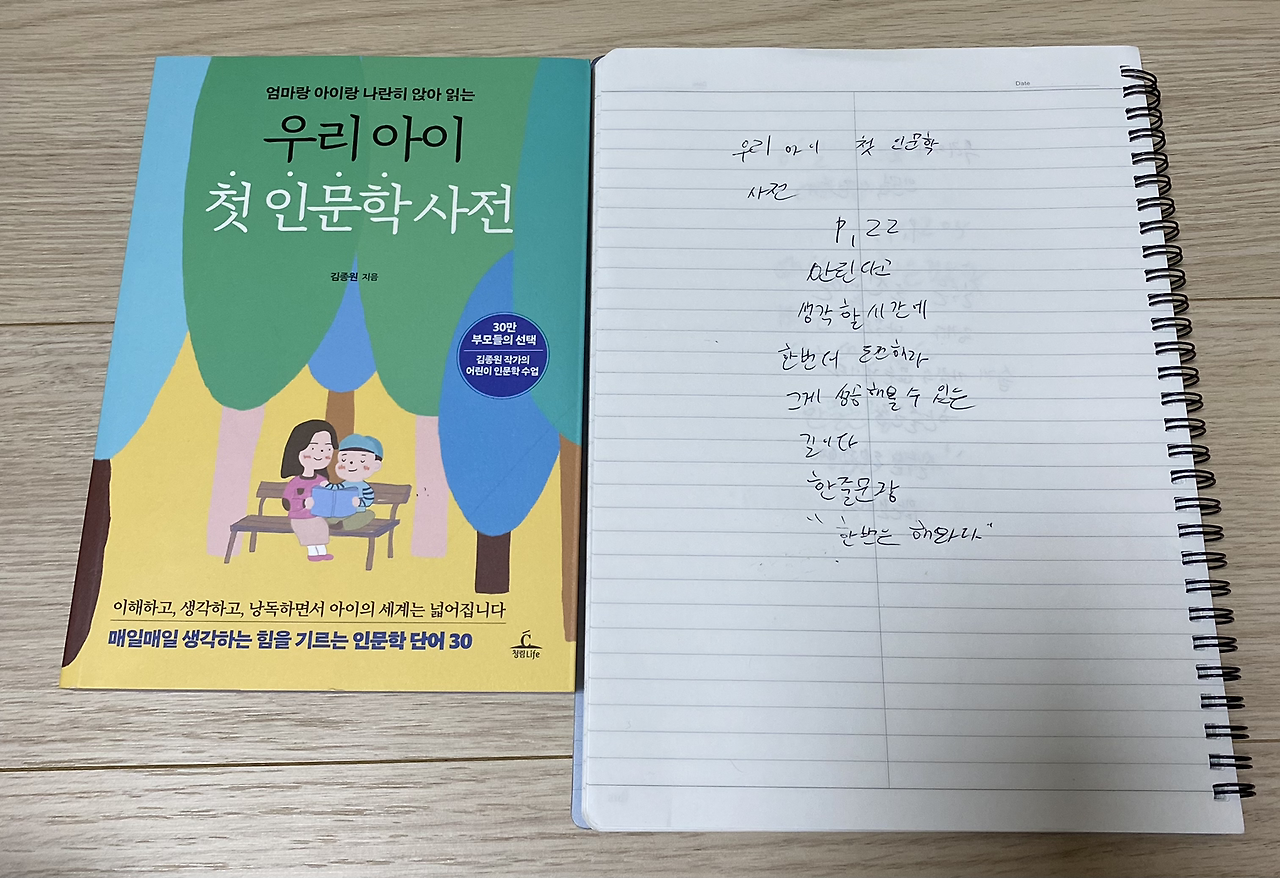 엄마랑 아이랑 나란히 앉아 읽는
우리 아이
첫 인문학 사전
김종원 지음
30만
부모들의 선택
김종원 작가의
어린이 인문학 수업
이해하고, 생각하고, 낭독하면서 아이의 세계는 넓어집니다
매일매일 생각하는 힘을 기르는 인문학 단어 30
청림Life
Date
우리 아이 첫 인문학
사전
P, 22
안된다고
생각할 시간에
한번 더 도전하라
그게 성공해볼 수 있는
길이다
한줄문장
"한번은 해봐라"